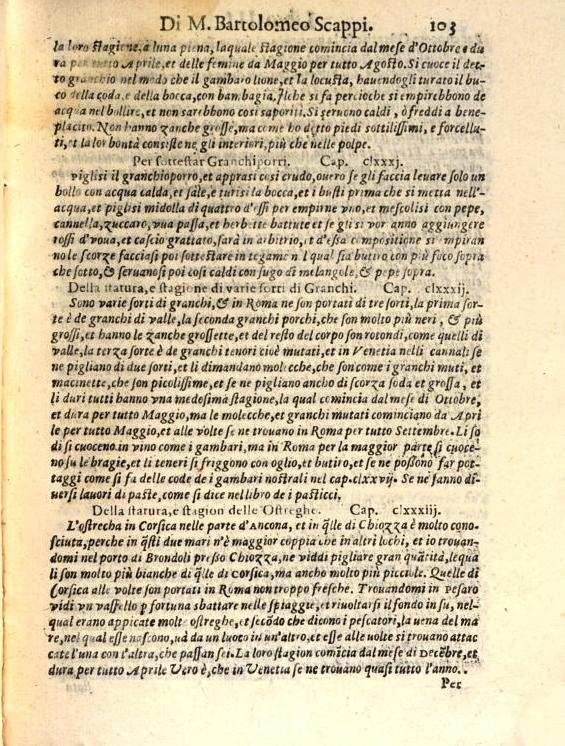 Di M. Bartolomeo Scappi. 103
la loro stagione, à luna piena, laquale stagione comincia dal mese d'Ottobre e du
ra per tutto Aprile, et delle femine da Maggio per tutto Agosto. Si cuoce il det-
to granchio nel modo che il gambaro lione, et la locusta, hauendogli turato il bu-
co della coda, e della bocca, con bambagia. Ilche si fa percioche si empirebbono de
acqua nel bollire, et non sarebbono cosi saporiti. Si seruono caldi, ò freddi a bene-
placito. Non hanno zanche grosse, ma come ho detto piedi sottilissimi, e forcellu-
ti, et la lor bontà consiste ne gli interiori, più che nelle polpe.
Per sottestar Granchiporri. Cap. clxxxj.
Piglisi il granchioporro, et apprasi cosi crudo, ouero se gli faccia leuare solo un
bollo con acqua calda, et sale, e turisi la bocca, et i busti prima che si metta nell'-
acqua, et piglisi midolla di quattro d'essi per empirne vno, et mescolisi con pepe,
cannella, zuccaro, vua passa, et herbette battute et se gli si vor anno aggiungere
rossi d'voua, et cascio grattato, sarà in arbitrio, et d'essa compositione si empiran
no le scorze facciasi poi sottestare in tegame nel qual sia butiro con più foco sopra
che sotto, & seruanosi poi cosi caldi con sugo di melangole, & pepe sopra.
Della statura, e stagione di varie sorti di Granchi. Cap. clxxxij.
Sono varie sorti di granchi, & in Roma ne son portati di tre sorti, la prima sor-
te è de granchi di valle, la seconda granchi porchi, che son molto più neri, & più
grossi, et hanno le zanche grossette, et del resto del corpo son rotondi, come quelli di
valle, la terza sorte è de granchi tenori cioè mutati, et in Venetia nelli cannali se
ne pigliano di due sorti, et li dimandano molecche, che son come i granchi muti, et
macinette, che son picolissime, et se ne pigliano ancho di scorza soda et grossa, et
li duri tutti hanno vna medesima stagione, la qual comincia dal mese di Ottobre,
et dura per tutto Maggio, ma le molecche, et granchi mutati cominciano da Apri
le per tutto Maggio, et alle volte se ne trouano in Roma per tutto Settembre. Li so
di si cuoceno in vino come i gambari, ma in Roma per la maggior parte si cuoce-
no su le bragie, et li teneri si friggono con oglio, et butiro, et se ne possono far pot-
taggi come si fa delle code de i gambari nostrali nel cap. clxxvij. Se ne fanno di-
uersi lauori di paste, come si dice nel libro de i pasticci,
Della statura, e stagion delle Ostreghe. Cap. clxxxiij.
L'ostrecha in Corsica nelle parte d'Ancona, et in q̃lle di Chiozza è molto cono-
sciuta, perche in q̃sti due mari n'è maggior coppia che in altri lochi, et io trouan-
domi nel porto di Brondoli presso Chiozza, ne viddi pigliare gran quãtità, lequa
li son molto più bianche di q̃lle di corsica, ma ancho molto più picciole. Quelle di
Corsica alle volte son portati in Roma non troppo fresche. Trouandomi in Pesaro
vidi vn vassello p fortuna sbattare nelle spiaggie, et riuoltarsi il fondo in su, nel-
qual erano appicate molte ostreghe, et secõdo che dicono i pescatori, la uena del ma
re, nel qual esse nascono, uà da un luoco in un'altro, et esse alle uolte si trouano attac
cate l'una con l'altra, che passan sei. La loro stagion comĩcia dal mese di Decẽbre, et
dura per tutto Aprile Vero è, che in Venetia se ne trouano quasi tutto l'anno.
Per